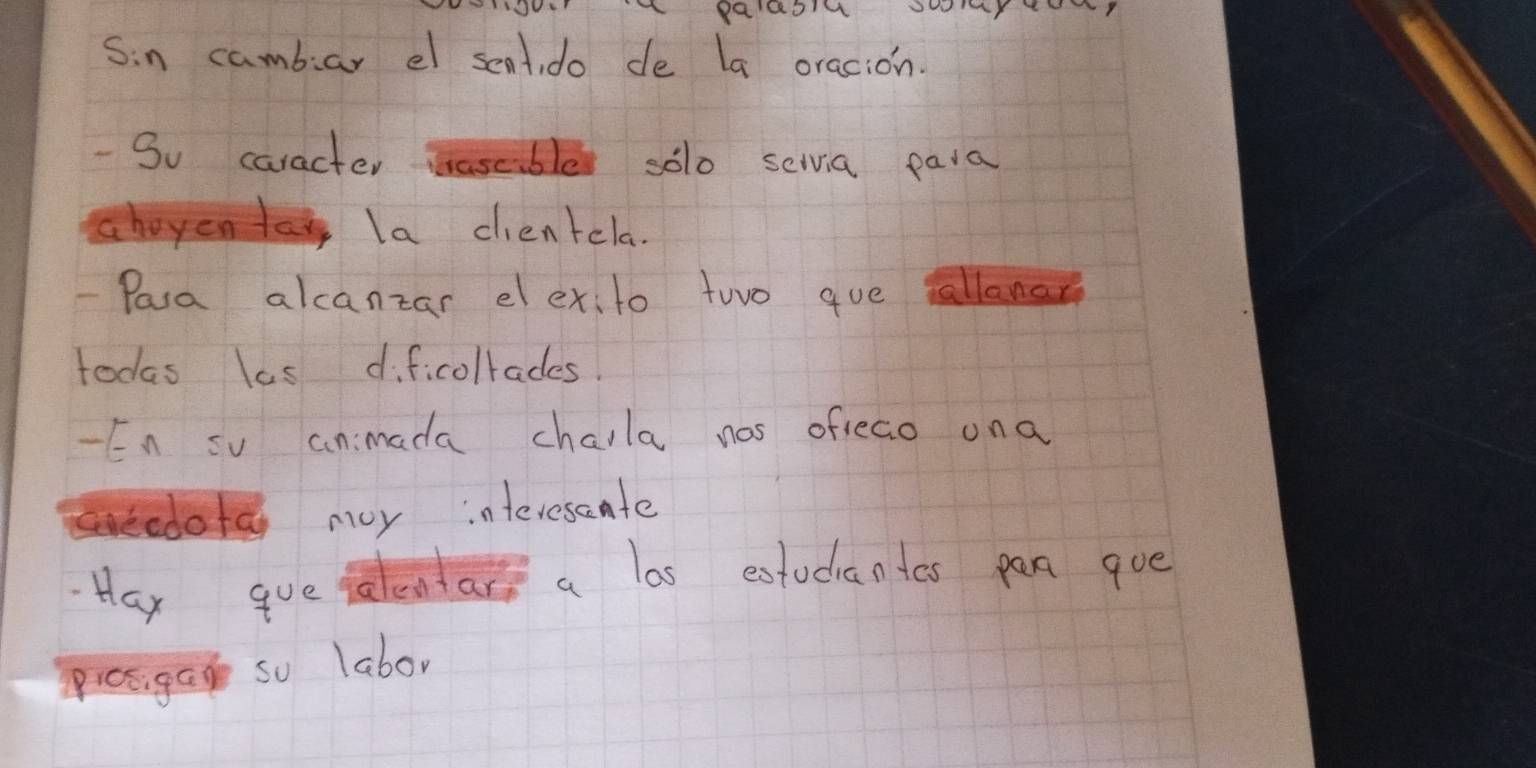 la palabra subrayada,
Sin cambiar el sentido de la oración.
- Su caracter irascible sólo servia para
ahuyentar, la clientela.
- Para alcanzar el exito tuvo que allanar
todas las dificultades.
- En su animada charla nos ofrecio una
anécdota muy interesante
- Hay que alentar, a los estudiantes para que
prosigan su labor